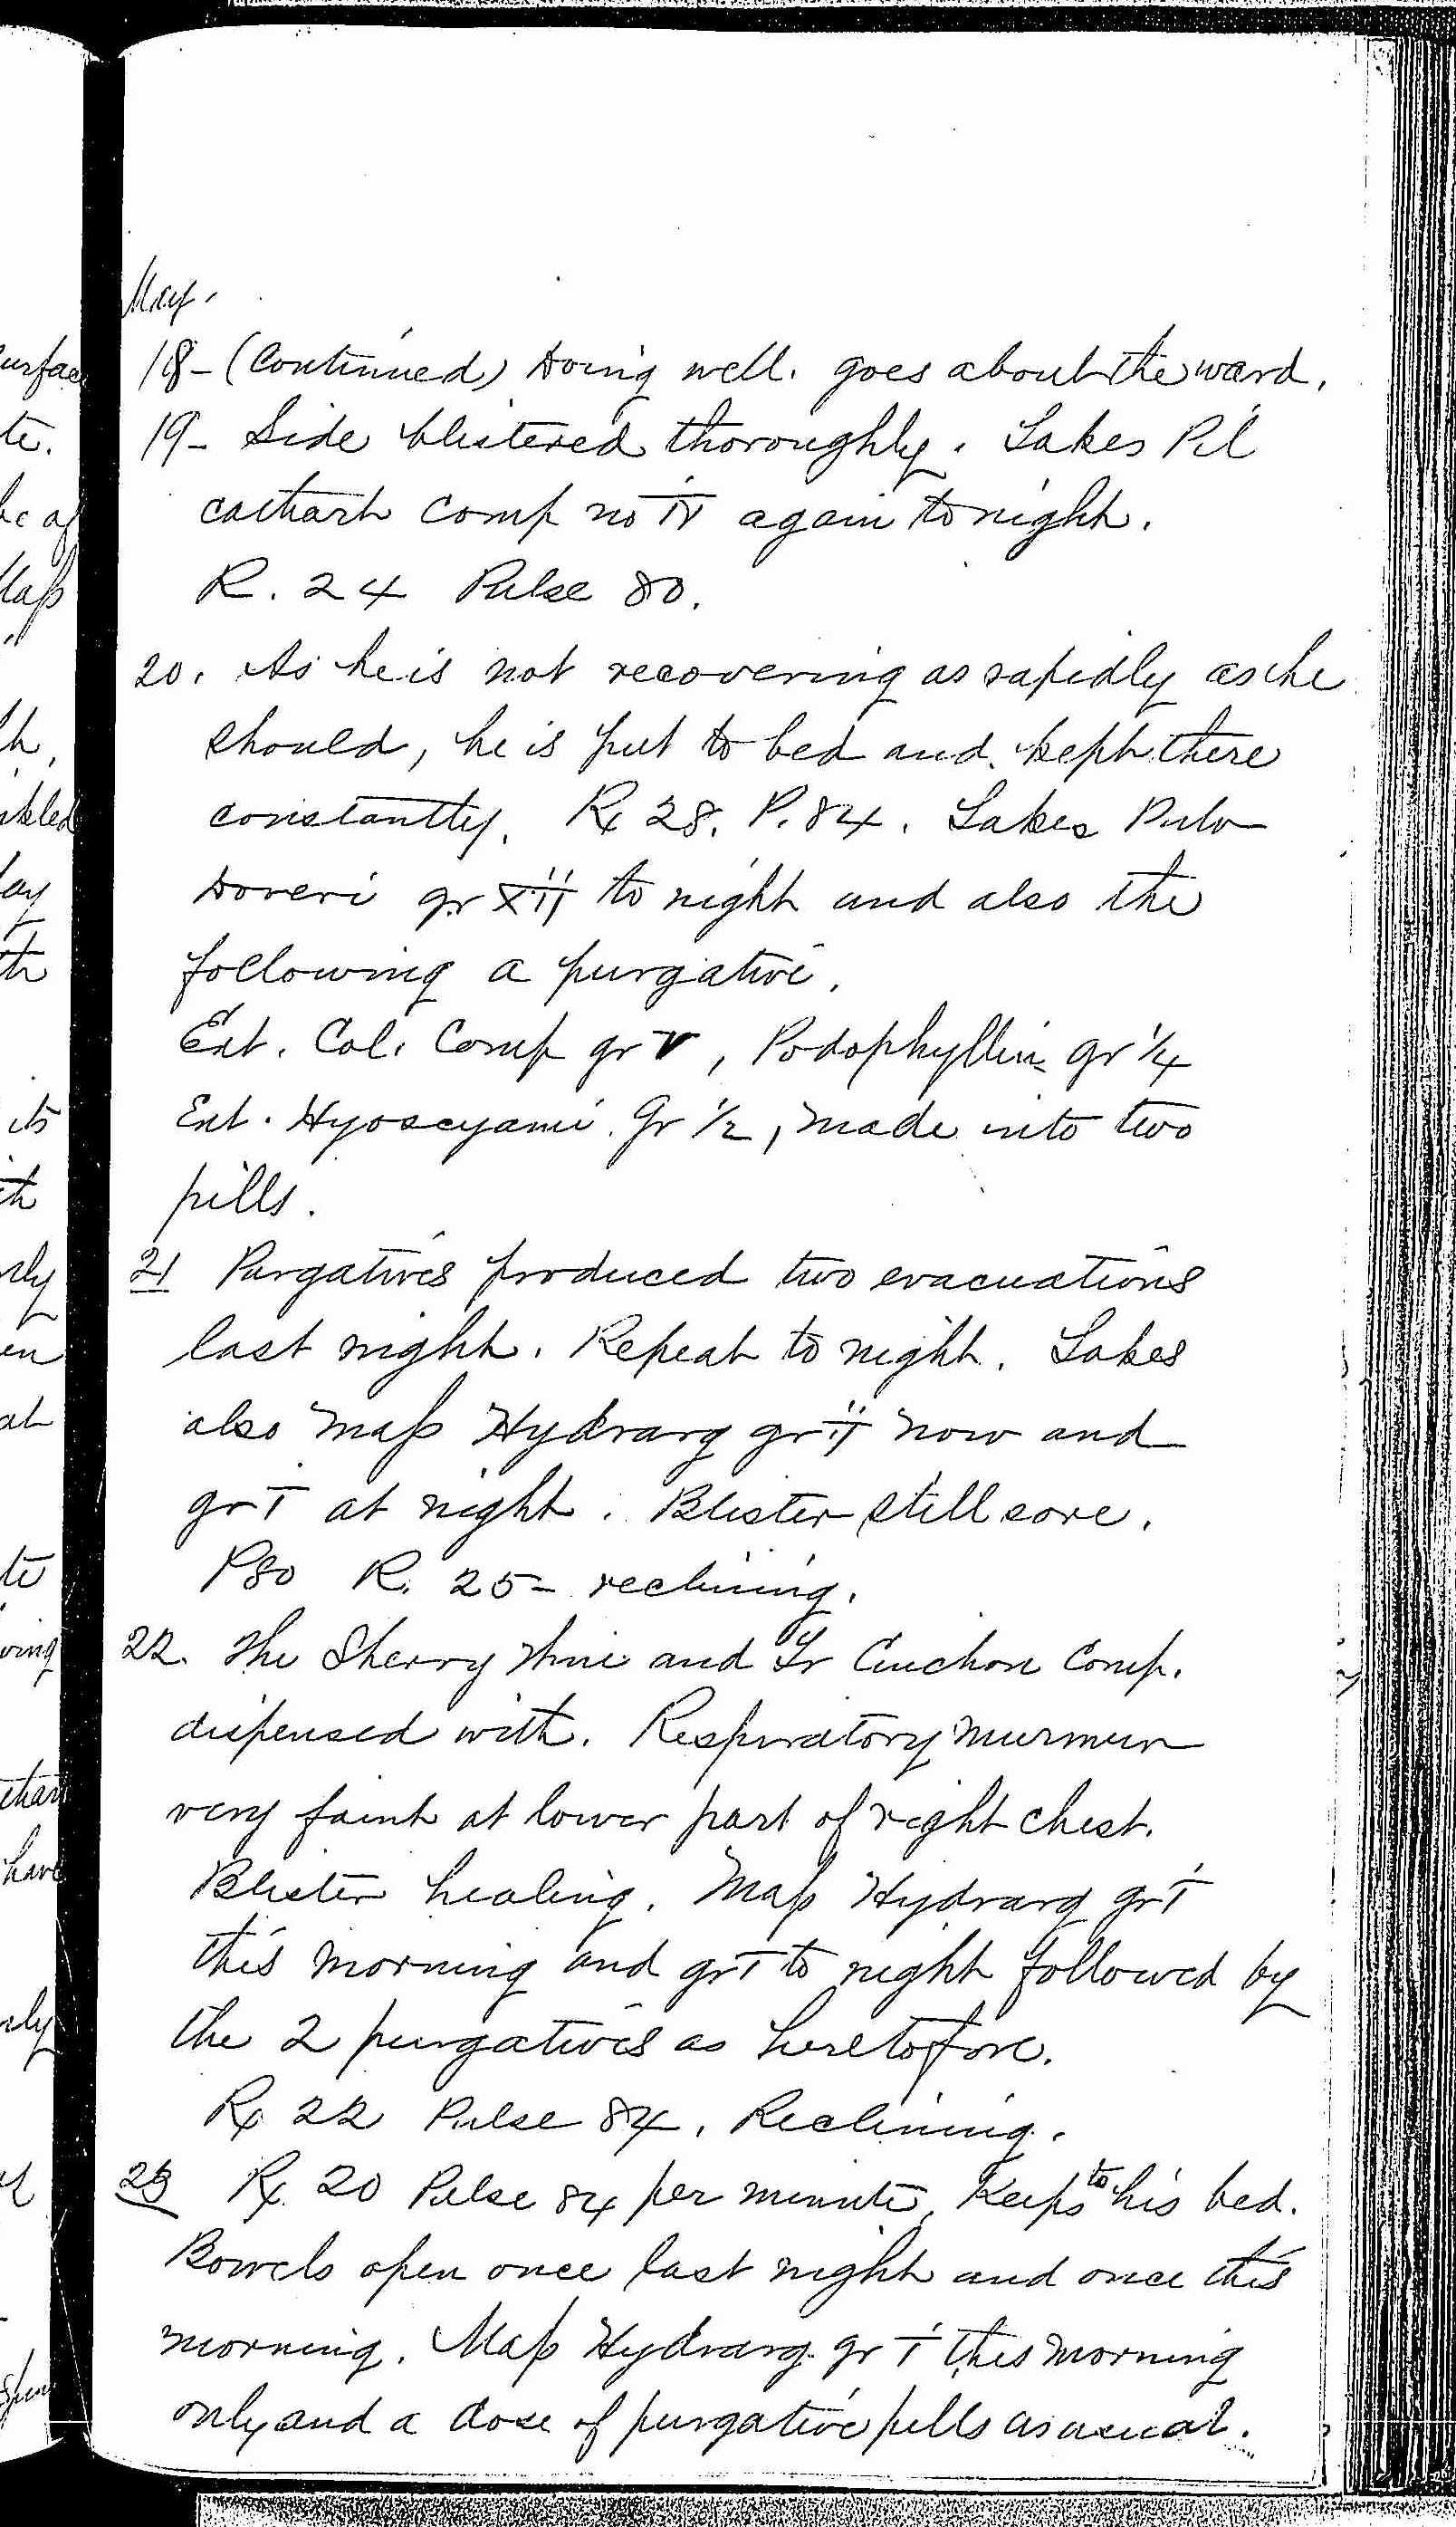 May.
18- (Continued) Doing well. goes about the ward.
19- Side blistered thoroughly. Takes Pil
cathart comp no iv again to night.
R. 24 Pulse 80.
20. As he is not recovering as rapidly as he
should, he is put to bed and kept there
constantly. R 28. P. 84. Takes Pulv
Doveri gr xii to night and also the
following a purgative.
Ext. Col. Comp gr v, Podophyllin gr 1/4
Ext. Hyoscyami. Gr 1/2, made into two
pills.
21 Purgatives produced two evacuations
last night. Repeat to night. Takes
also Mass Hydrarg gr ii now and
gr i at night. Blister still sore.
P 80 R. 25- reclining.
22. The Sherry Wine and Tr Cinchon Comp.
dispensed with. Respiratory murmur
very faint at lower part of right chest.
Blister healing. Mass Hydrarg gr i
this morning and gr i to night followed by
the 2 purgatives as heretofore.
R 22 Pulse 84. Reclining.
23 R 20 Pulse 84 per minute. Keeps to his bed.
Bowels open once last night and once this
morning. Mass Hydrarg. gr i this morning
only and a dose of purgative pills as usual.